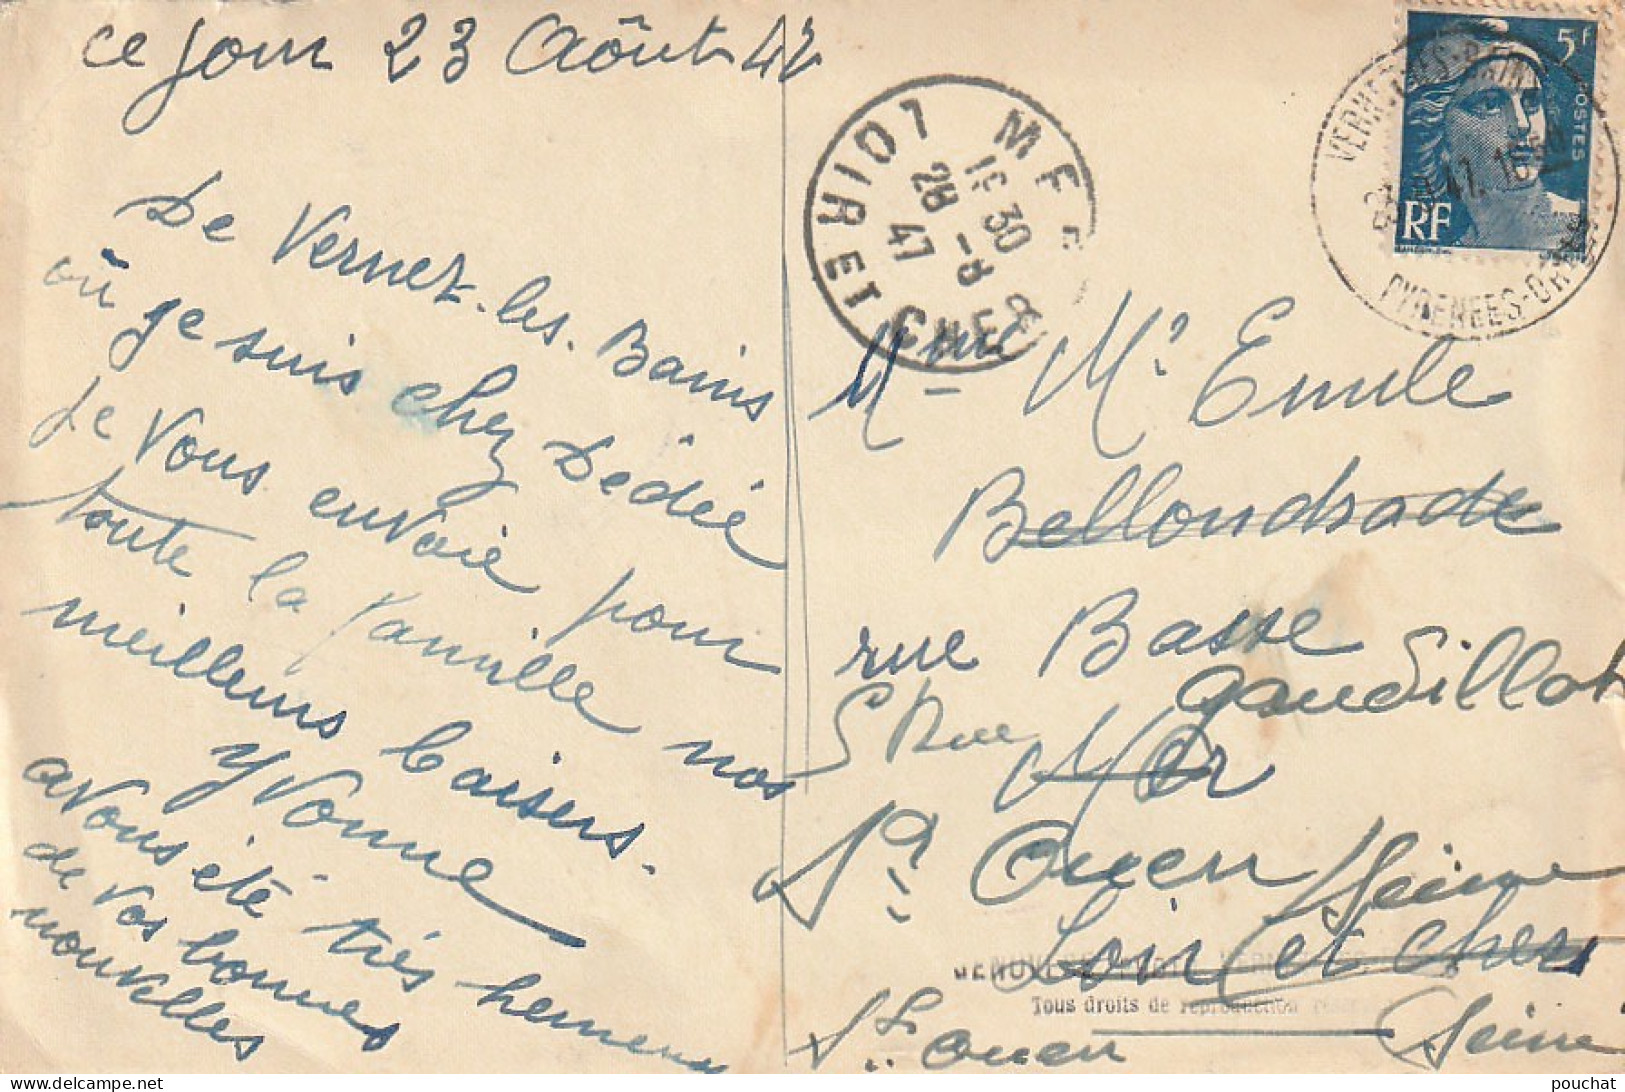 ce jour 23 Août 47
De Vernet-les-Bains
où je suis chez Dédée
Je vous envoie pour
toute la famille nos
meilleurs baisers.
Yvonne
avons été très heureux
de vos bonnes
nouvelles
5F
POSTES
RF
VERNET-LES-BAINS
47. 16
PYRENEES-OR
MER
30
28 -8
47
LOIR ET CHER
Mme Mr Emile
Bellondrade
rue Basse
5 Rue Gaudillot
Mer
St Ouen Seine
Loir et Cher
Tous droits de reproduction
St. Ouen Seine
pouchat
delcampe.net